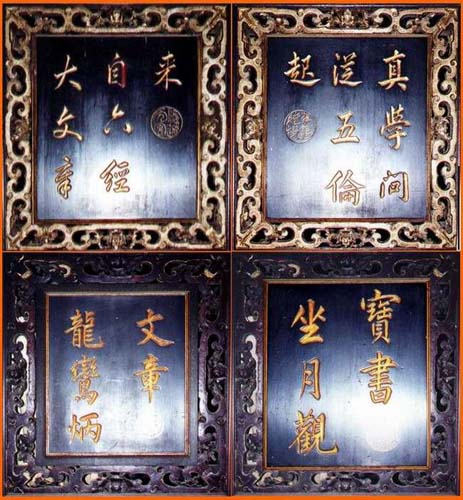 真學问
從五倫
起
大文章
自六經
来
寶書
坐月觀
文章
龍鸞炳